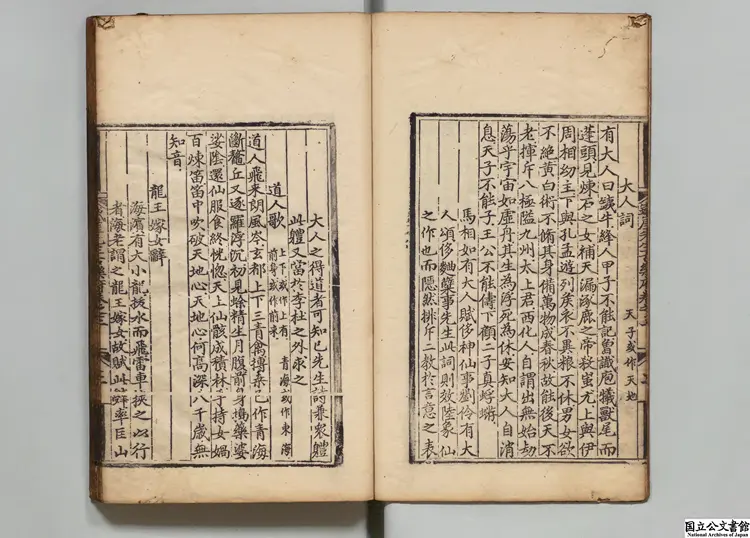 大人詞　天子或作天地
有大人曰鐵牛絳人甲子不能記曾識庖犧獸尾而
蓬頭見煉石之女補天漏涿鹿之帝殺蚩尤上與伊
周相幼主下與孔孟遊列侯衣不異粮不休男女欲
不絶黄白術不脩其身備萬物成春秋故能後天不
老揮斥八極隘九州太上君西化人自謂出無始劫
蕩乎宇宙如虛舟其生為浮死為休安知大人自消
息天子不能子王公不能儔下顧二子真蜉蝣
馬相如有大人賦侈神仙事劉伶有大
人頌侈麯糵事先生此詞則效陸象仙
之作也而隱然排斥二教於言意之表
大人之得道者可知已先生詩兼衆體
此體又當於李杜之外求之
道人歌　上下或作上有　青海或作東海
前身或作前来
道人飛来朗風岑玄都上下三青禽摶桑已作青海
斷鼇丘又逐羅浮沉初見蜍精生月腹前身搗藥婆
娑陰還仙服食終恍惚天上仙骸成積林子持女媧
百煉笛笛中吹破天地心天地心何高深八千歲無
知音
龍王嫁女辭
海濵有大小龍拔水而飛雷車挾之以行
者海老謂之龍王嫁女故賦此辭率匡山
国立公文書館
National Archives of Japan